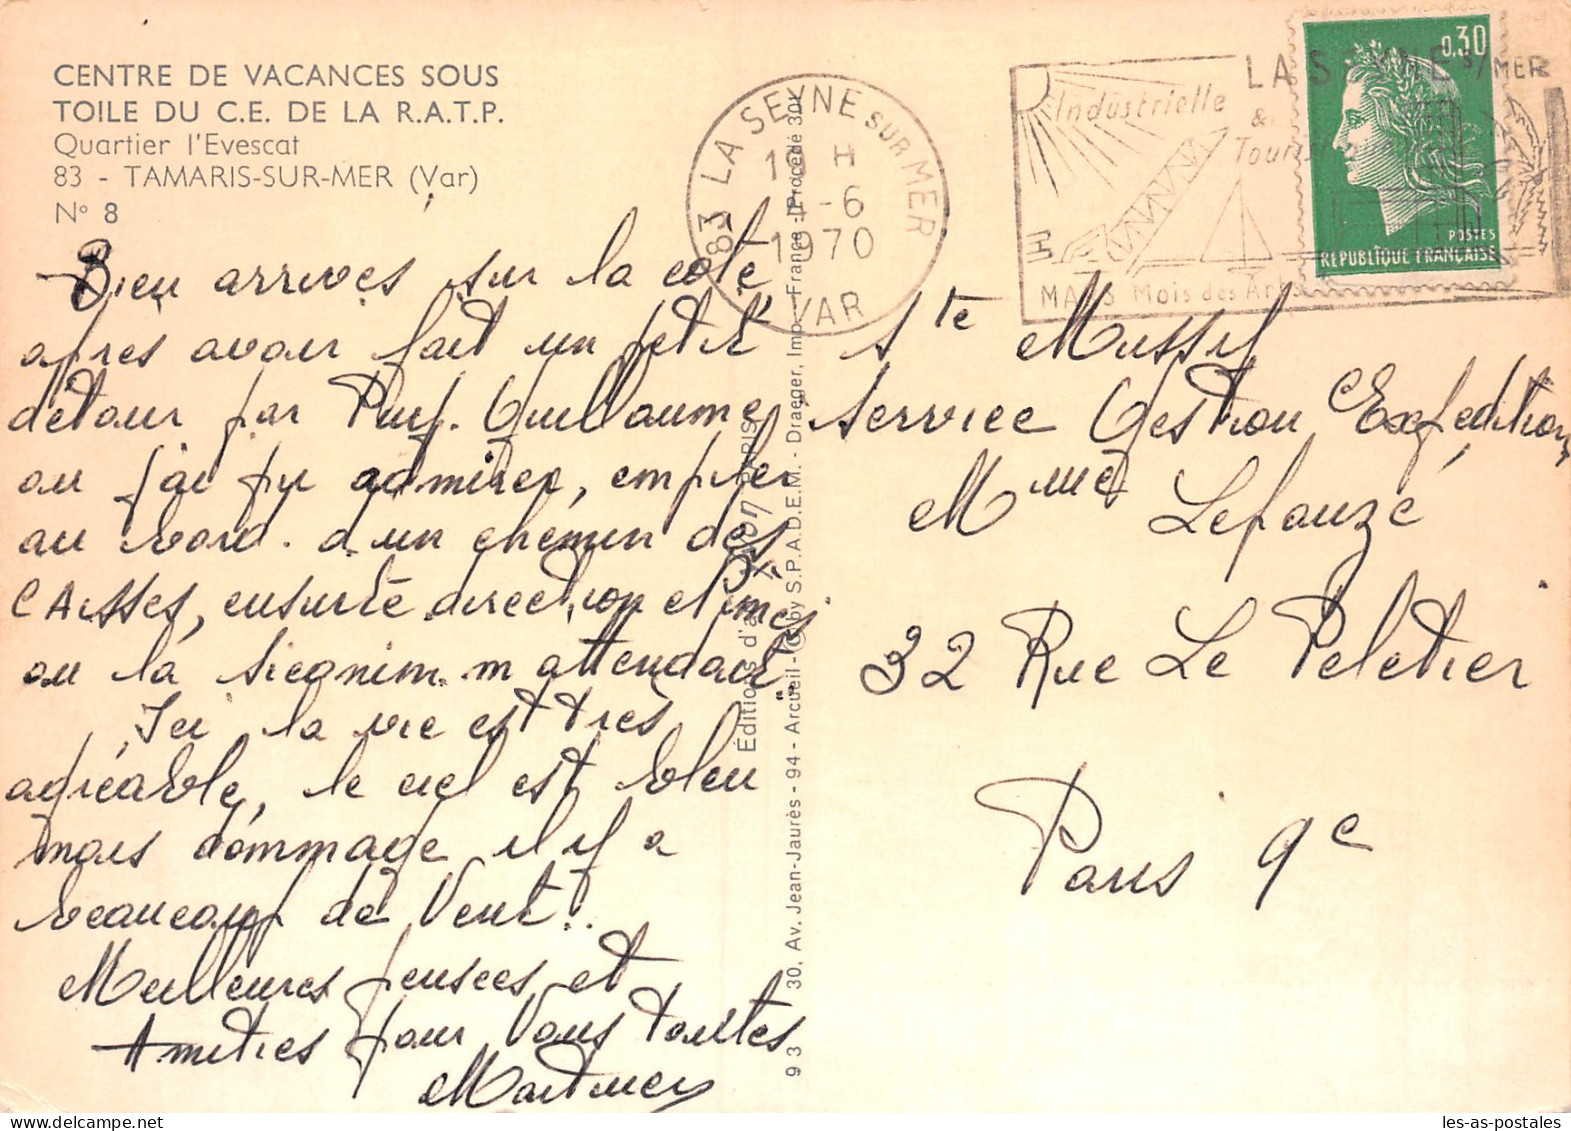 CENTRE DE VACANCES SOUS
TOILE DU C.E. DE LA R.A.T.P.
Quartier l'Evescat
83 - TAMARIS-SUR-MER (Var)
N° 8
Bien arrives sur la cote
apres avoir fait un petit
détour par Puy. Guillaume
ou j'ai pu admirer, empiler
au bord. d'un chemin des
CAisses, ensuite direction
ou la m'attendait..
Ici la vie est très
agréable, le ciel est bleu
mais dommage il y a
beaucoup de Vent..
Meilleures pensees et
Amities pour Vous toutes
83 LA SEYNE SUR MER
H
-6
1970
VAR
LA SEYNE S/MER
Industrielle
&
MARS Mois des Arts
0,30
POSTES
REPUBLIQUE FRANÇAISE
Ste
Service Gestion Expédition
Mme Lefauze
32 Rue Le Peletier
Paris 9e
Éditions d'art Yvon PARIS
93 30, Av. Jean-Jaurès - 94 - Arcueil - © by S.P.A.D.E.M. - Draeger, Imp. France - (Procédé 301
les-as-postales